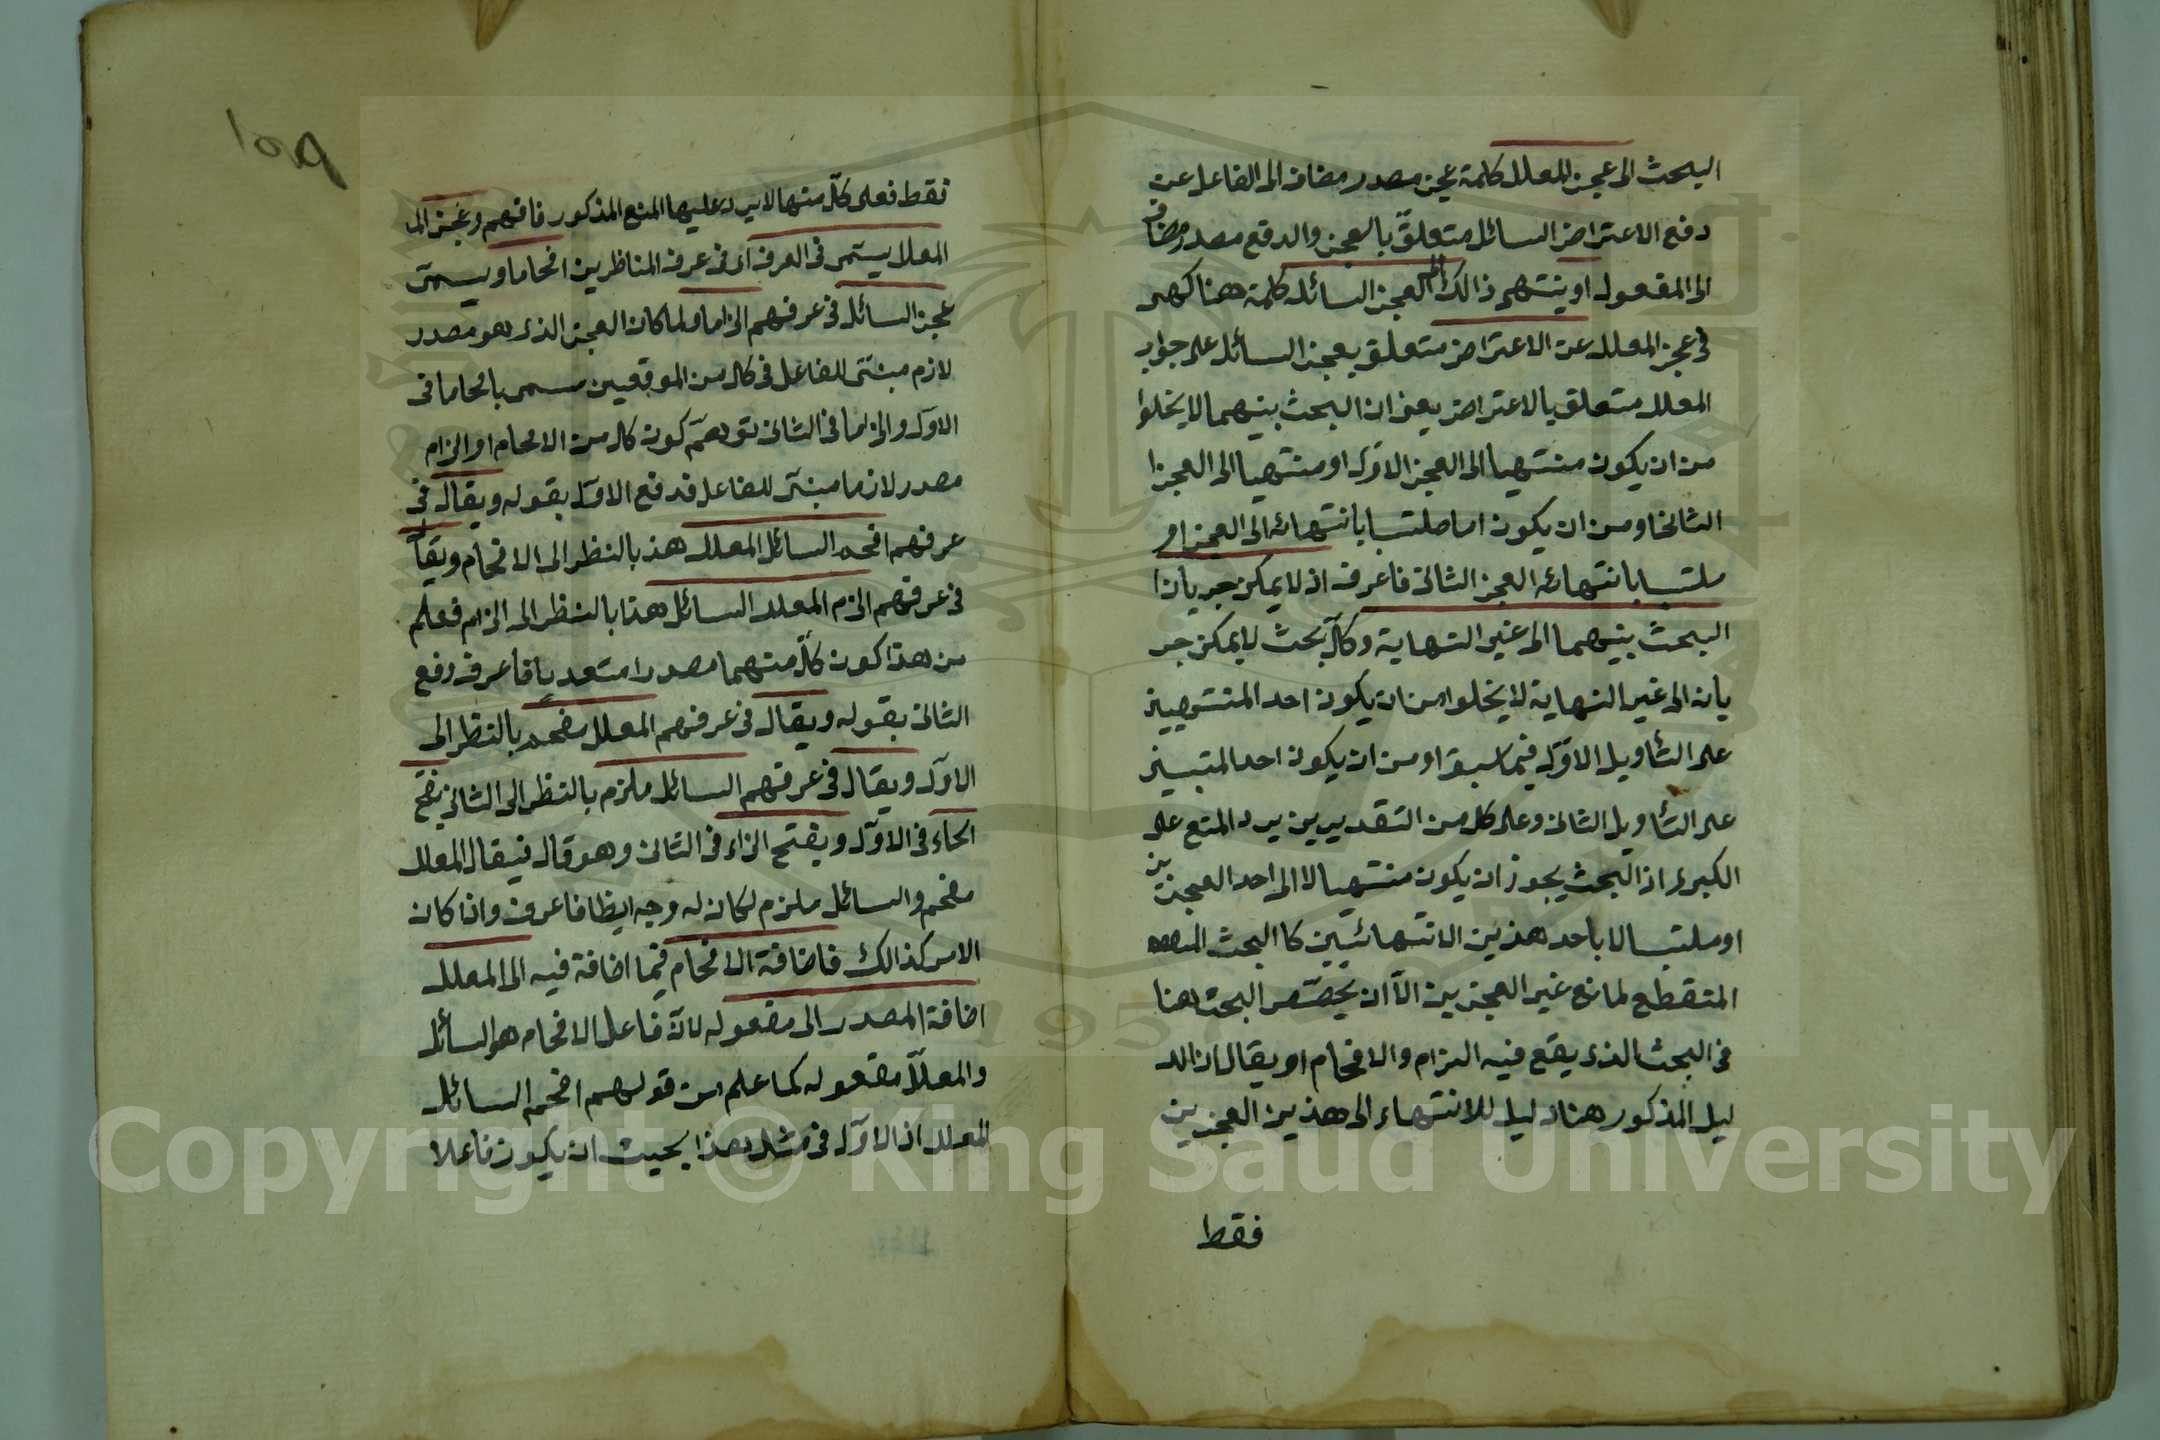 البحث الى عجز المعلل كلمة عجز مصدر مضاف الى الفاعل عن
دفع الاعتراض السائل متعلق بالعجز والدفع مصدر مضاف
الى المفعول او ينتهى ذالك الى العجز السائل كلمة هنا كهى
فى عجز المعلل عن الاعتراض متعلق بعجز السائل على جواب
المعلل متعلق بالاعتراض يعنى ان البحث بينهما لا يخلوا
من ان يكون منتهيا الى العجز الاول او منتهيا الى العجز ا
الثانى او من ان يكون اما ملتبسا بانتهائه الى العجز او
ملتبسا بانتهائه العجز الثانى فاعرف اذ لا يمكن جريان ا
البحث بينهما الى غير النهاية وكل بحث لا يمكن جر
يان الى غير النهاية لا يخلوا من ان يكون احد المنتهيين
على التأويل الاول فيما سبق او من ان يكون احد المتبسين
على التأويل الثانى وعلى كل من التقديرين يرد المنع على
الكبرى اذ البحث يجوز ان يكون منتهيا لا الى احد العجزين
او ملتبسا لا باحد هذين الانتهائيين كا البحث
المنقطع لمانع غير العجزين الا ان يخصص البحث هنا
فى البحث الذى يقع فيه الزام والافحام او يقال ان الد
ليل المذكور هنا دليل للانتهاء الى هذين العجزين
فقط
١٥٩
فقط فعلى كل منها لا يرد عليها المنع المذكور فافهم وعجز الما
المعلل يسمى فى العرف اى فى عرف المناظرين افحاما ويسمى
عجز السائل فى عرفهم الزاما ولما كان العجز الذى هو مصدر
لازم مبنى للفاعل فى كل من الموقعين سمى بافحاما فى
الاول والزاما فى الثانى توهم كون كل من الافحام او الزام
مصدر لازما مبنى للفاعل فدفع الاول بقوله ويقال فى
عرفهم افحم السائل المعلل هذ بالنظر الى الافحام ويقال
فى عرفهم الزم المعلل السائل هذا بالنظر الى الزام فعلم
من هذا كون كل منهما مصدرا متعديا فاعرف دفع
الثانى بقوله ويقال فى عرفهم المعلل مفحم بالنظر الى
الاول ويقال فى عرفهم السائل ملزم بالنظر الى الثانى بفتح
الحاء فى الاول وبفتح الزاء فى الثانى وهو قال فيقال المعلل
مفحم والسائل ملزم لكان له وجه ايظا فاعرف واذا كان
الامر كذالك فاضافة الافحام فيما اضافة فيه الى المعلل
اضافة المصدر الى مفعوله لان فاعل الافحام هو السائل
والمعلل مفعوله كما علم من قولهم افحم السائل
المعلل اذ الاول فى مثل هذا بحيث ان يكون فاعلا
Copyright © King Saud University
1957